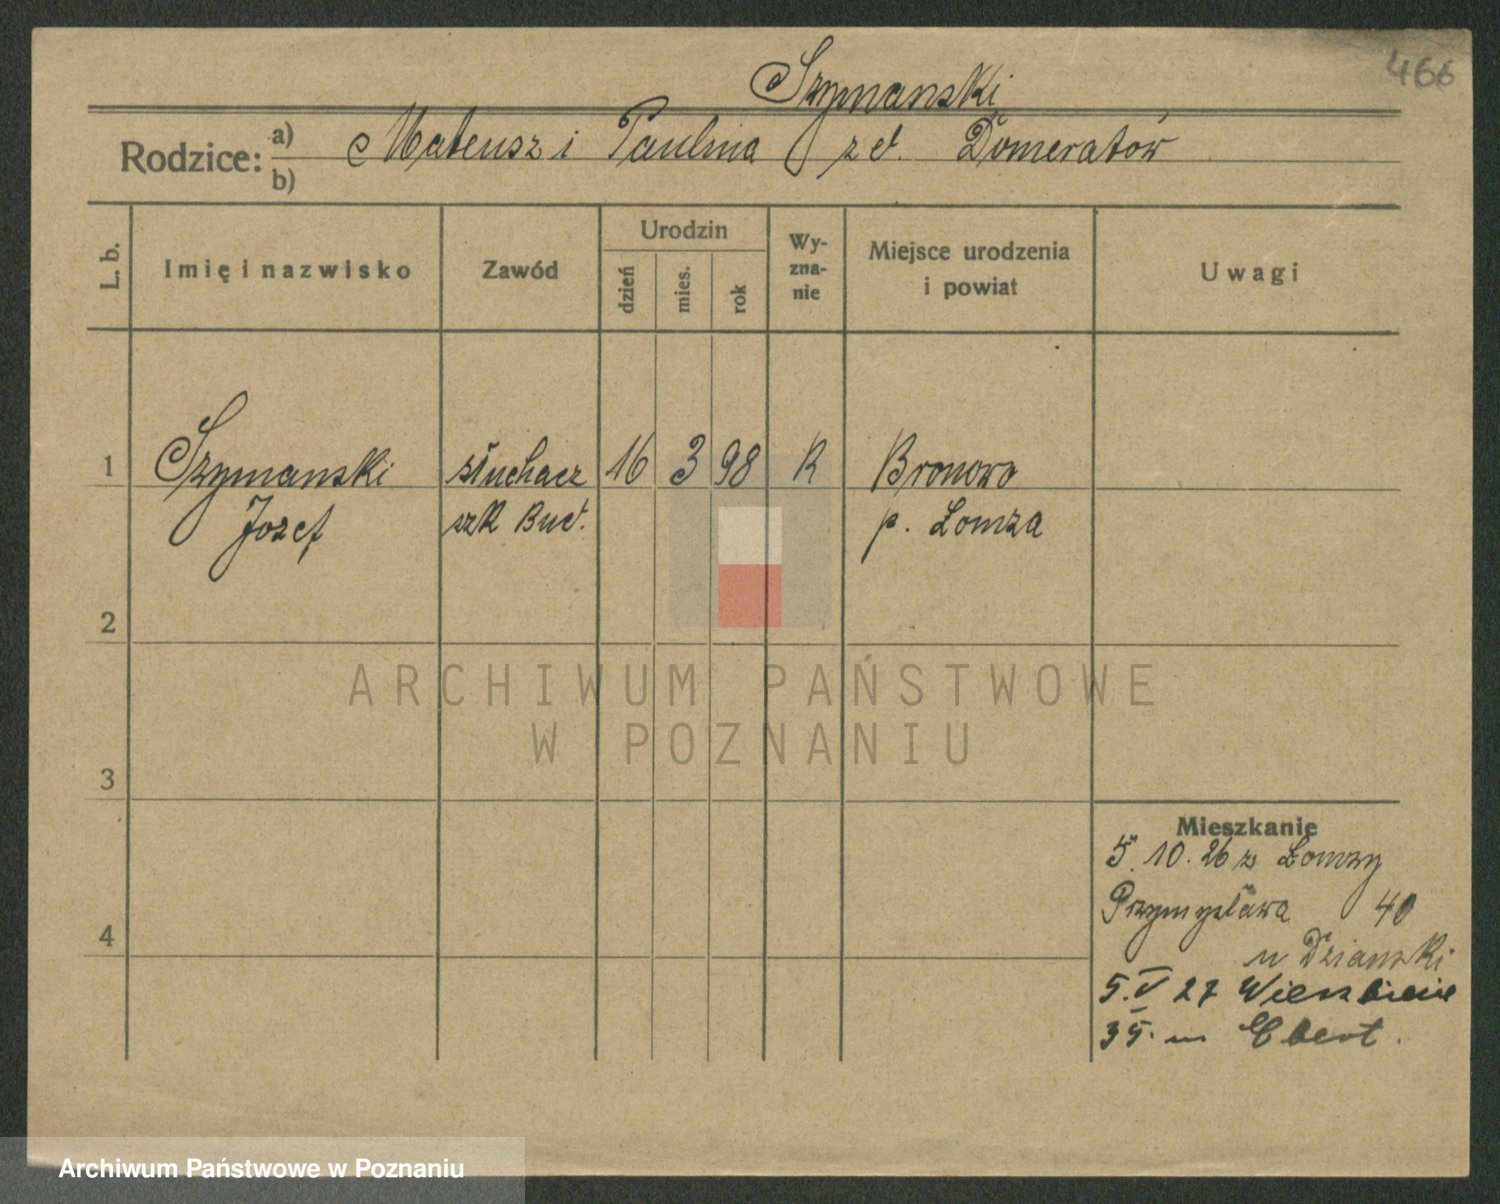 466
Szymanski
Rodzice: a) b) Mateusz i Paulina z d. Domeratów
L. b. Imię i nazwisko Zawód Urodzin dzień mies. rok Wy-zna-nie Miejsce urodzenia i powiat Uwagi
1 Szymanski słuchacz 16 3 98 R Bronowo
Jozef szk Bud. p. Łomza
2
3
4
Mieszkanie
5.10.26 z Łomzy
Przemysława 40
u Dzianski
5.V 27 Wierzbiecice
35. m Ebert.
ARCHIWUM PAŃSTWOWE
W POZNANIU
Archiwum Państwowe w Poznaniu